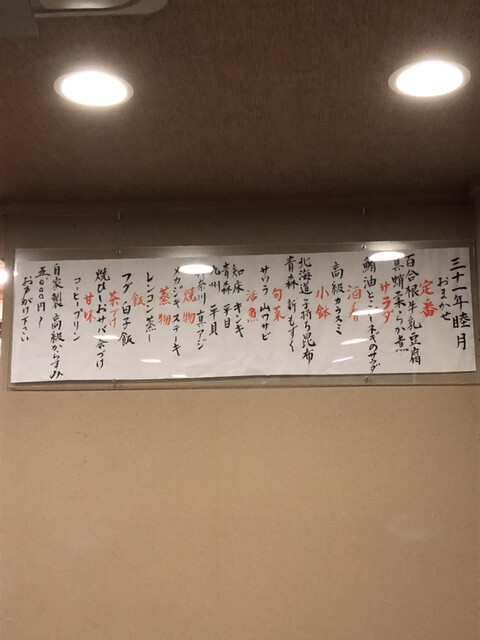 三十一年睦月
おまかせ
定番
百合根牛乳豆腐
真蛸柔らか煮
サラダ
鮪油とこネギのサラダ
酒肴
高級カラスミ
小鉢
北海道 子持ち昆布
青森 新もずく
旬菜
サワラ 山ワサビ
活魚
知床 キンキ
青森 平目
九州 平貝
神奈川 真アジ
焼物
メカジキステーキ
蒸物
レンコン蒸し
飯
フグ白子飯
茶づけ
焼ひしおサバ茶づけ
甘味
コーヒープリン
自家製 高級からすみ
五、000円〜
お声がけ下さい